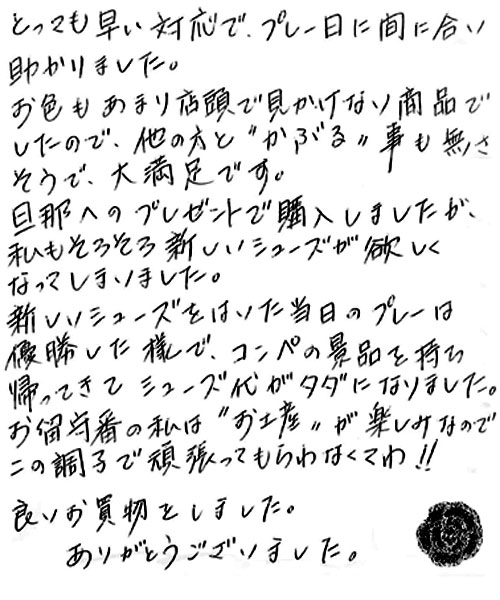 とっても早い対応で、プレー日に間に合い
助かりました。
お色もあまり店頭で見かけない商品で
したので、他の方と〝かぶる〟事も無さ
そうで、大満足です。
旦那へのプレゼントで購入しましたが、
私もそろそろ新しいシューズが欲しく
なってしまいました。
新しいシューズをはいた当日のプレーは
優勝した様で、コンペの景品を持ち
帰ってきてシューズ代がタダになりました。
お留守番の私は〝お土産〟が楽しみなので
この調子で頑張ってもらわなくてわ!!
良いお買物をしました。
ありがとうございました。